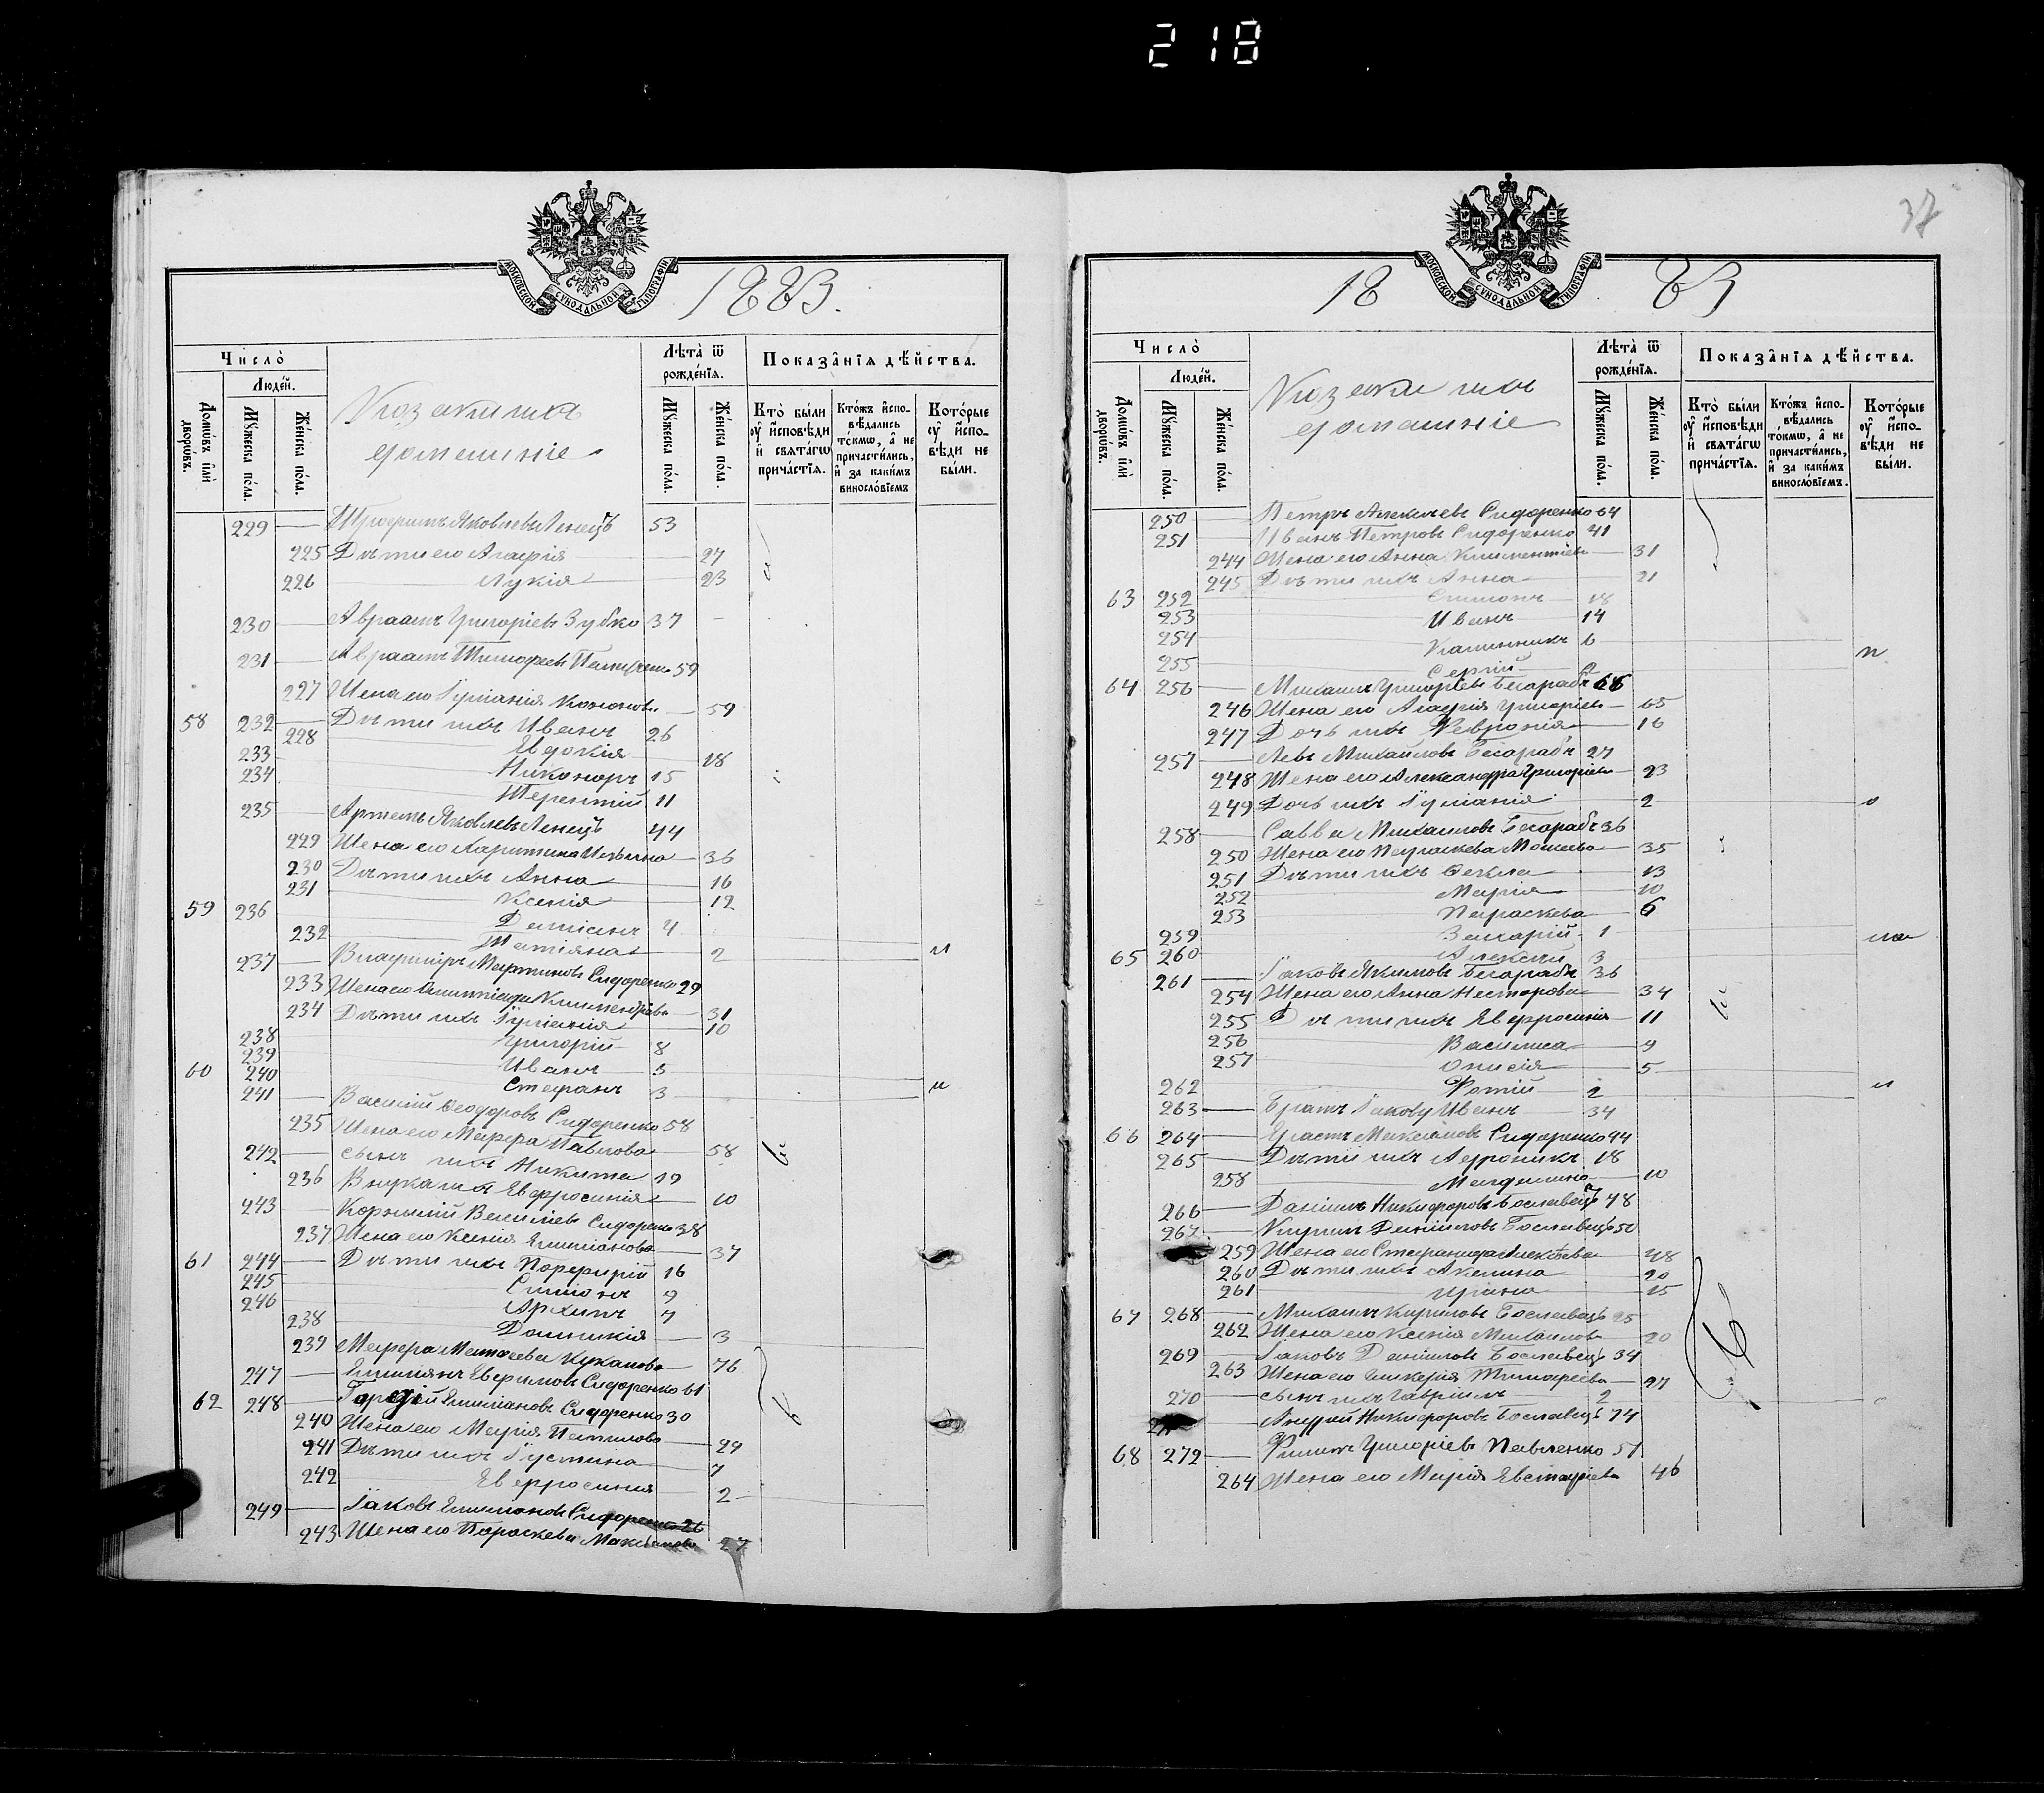 218
37
МОСКОВСКОЙ СѴНОДАЛЬНОЙ ТИПОГРАФІИ
1883.
Число̀
Людей.
Домѡ́въ и҆лѝ дворѡ́въ.
Мꙋ́жеска по́ла.
Же́нска по́ла.
Козаки и ихъ
домашніе
Лѣ́та ѿ рожде́нїѧ.
Мꙋ́жеска по́ла.
Же́нска по́ла.
Показа̂нїѧ дѣ́йства.
Кто̀ бы́ли ᲂу҆ и҆сповѣ́ди и҆ свѧта́гѡ прича́стїѧ.
Кто́жъ и҆сповѣ́дались то́кмѡ, а҆ не причасти́лись, и҆ за каки́мъ винословїемъ
Кото́рые ᲂу҆ и҆сповѣ́ди не бы́ли.
229 Трофимъ Яковлевъ Ленецъ 53
225 Дѣти его Агафія 27
226 Лукія 23
230 Авраамъ Григоріевъ Зубко 37
231 Авраамъ Тимофеевъ 59
227 Жена его Іуліанія Кононова 59
58 232 Дѣти ихъ Иванъ 26
228 Евдокія 18
233 Никаноръ 15
234 Терентій 11
235 Артемъ Яковлевъ Ленецъ 44
229 Жена его Харитина 36
230 Дѣти ихъ Анна 16
231 Ксенія 12
59 236 Даміанъ 4
232 Татіяна 2
237 Владиміръ Мартиновъ Сидоренко 29
233 Жена его Олимпіада 31
234 Дѣти ихъ Іуліанія 10
238 Григорій 8
239 Иванъ 5
60 240 Стефанъ 3
241 Василій Ѳеодоровъ Сидоренко 58
235 Жена его Марфа Павлова 58
242 сынъ ихъ Никита 19
236 Внука ихъ Евфросинія 10
243 Корнилій Василіевъ Сидоренко 38
237 Жена его Ксенія Емиліанова 37
61 244 Дѣти ихъ Порфирій 16
245 Симонъ 9
246 Архипъ 7
238 Домникія 3
239 Марфа Матѳеева 76
247 Емиліянъ Евфимовъ Сидоренко 61
62 248 Гордій Емиліановъ Сидоренко 30
240 Жена его Марія 29
241 Дѣти ихъ Іустина 7
242 Евфросинія 2
249 Іаковъ Емиліановъ Сидоренко 26
243 Жена его Параскева Максимова 27
18 83
МОСКОВСКОЙ СѴНОДАЛЬНОЙ ТИПОГРАФІИ
Число̀
Людей.
Домѡ́въ и҆лѝ дворѡ́въ.
Мꙋ́жеска по́ла.
Же́нска по́ла.
Козаки и ихъ
домашніе
Лѣ́та ѿ рожде́нїѧ.
Мꙋ́жеска по́ла.
Же́нска по́ла.
Показа̂нїѧ дѣ́йства.
Кто̀ бы́ли ᲂу҆ и҆сповѣ́ди и҆ свѧта́гѡ прича́стїѧ.
Кто́жъ и҆сповѣ́дались то́кмѡ, а҆ не причасти́лись, и҆ за каки́мъ винословїемъ.
Кото́рые ᲂу҆ и҆сповѣ́ди не бы́ли.
250 Петръ Сидоренко 64
251 Иванъ Петровъ Сидоренко 41
244 Жена его Анна Климентіева 31
245 Дѣти ихъ Анна 21
63 252 Симонъ 18
253 Иванъ 14
254 Каллиникъ 6
255 Сергій 2
64 256 Михаилъ Григоріевъ Бесарабъ 68
246 Жена его Агафія Григоріева 65
247 Дочь ихъ Февронія 16
257 Левъ Михайловъ Бесарабъ 27
248 Жена его Александра Григоріева 23
249 Дочь ихъ Іуліанія 2
258 Савва Михаиловъ Бесарабъ 36
250 Жена его Параскева Моисеева 35
251 Дѣти ихъ Ѳекла 13
252 Марія 10
253 Параскева 6
259 Захарій 1
65 260 Алексій 3
261 Іаковъ Якимовъ Бесарабъ 36
254 Жена его Анна Несторова 34
255 Дѣти ихъ Евфросинія 11
256 Василиса 9
257 Онисія 5
262 Фотій 2
263 Братъ Іакову Иванъ 34
66 264 Максимовъ Сидоренко 44
265 Дѣти ихъ 18
258 Магдалина 10
266 Даніилъ Никифоровъ 48
267 Кирилъ Даніиловъ 50
259 Жена его Стефанида Алексѣева 48
260 Дѣти ихъ Акилина 20
261 Ирина 15
67 268 Михаилъ Кириловъ 25
262 Жена его Ксенія Михаилова 20
269 Іаковъ Даніиловъ 34
263 Жена его Гликерія Тимофеева 27
270 сынъ ихъ Гавріилъ 2
Андрей Никифоровъ 74
68 272 Филипъ Григоріевъ Павленко 51
264 Жена его Марія Евстафіева 46